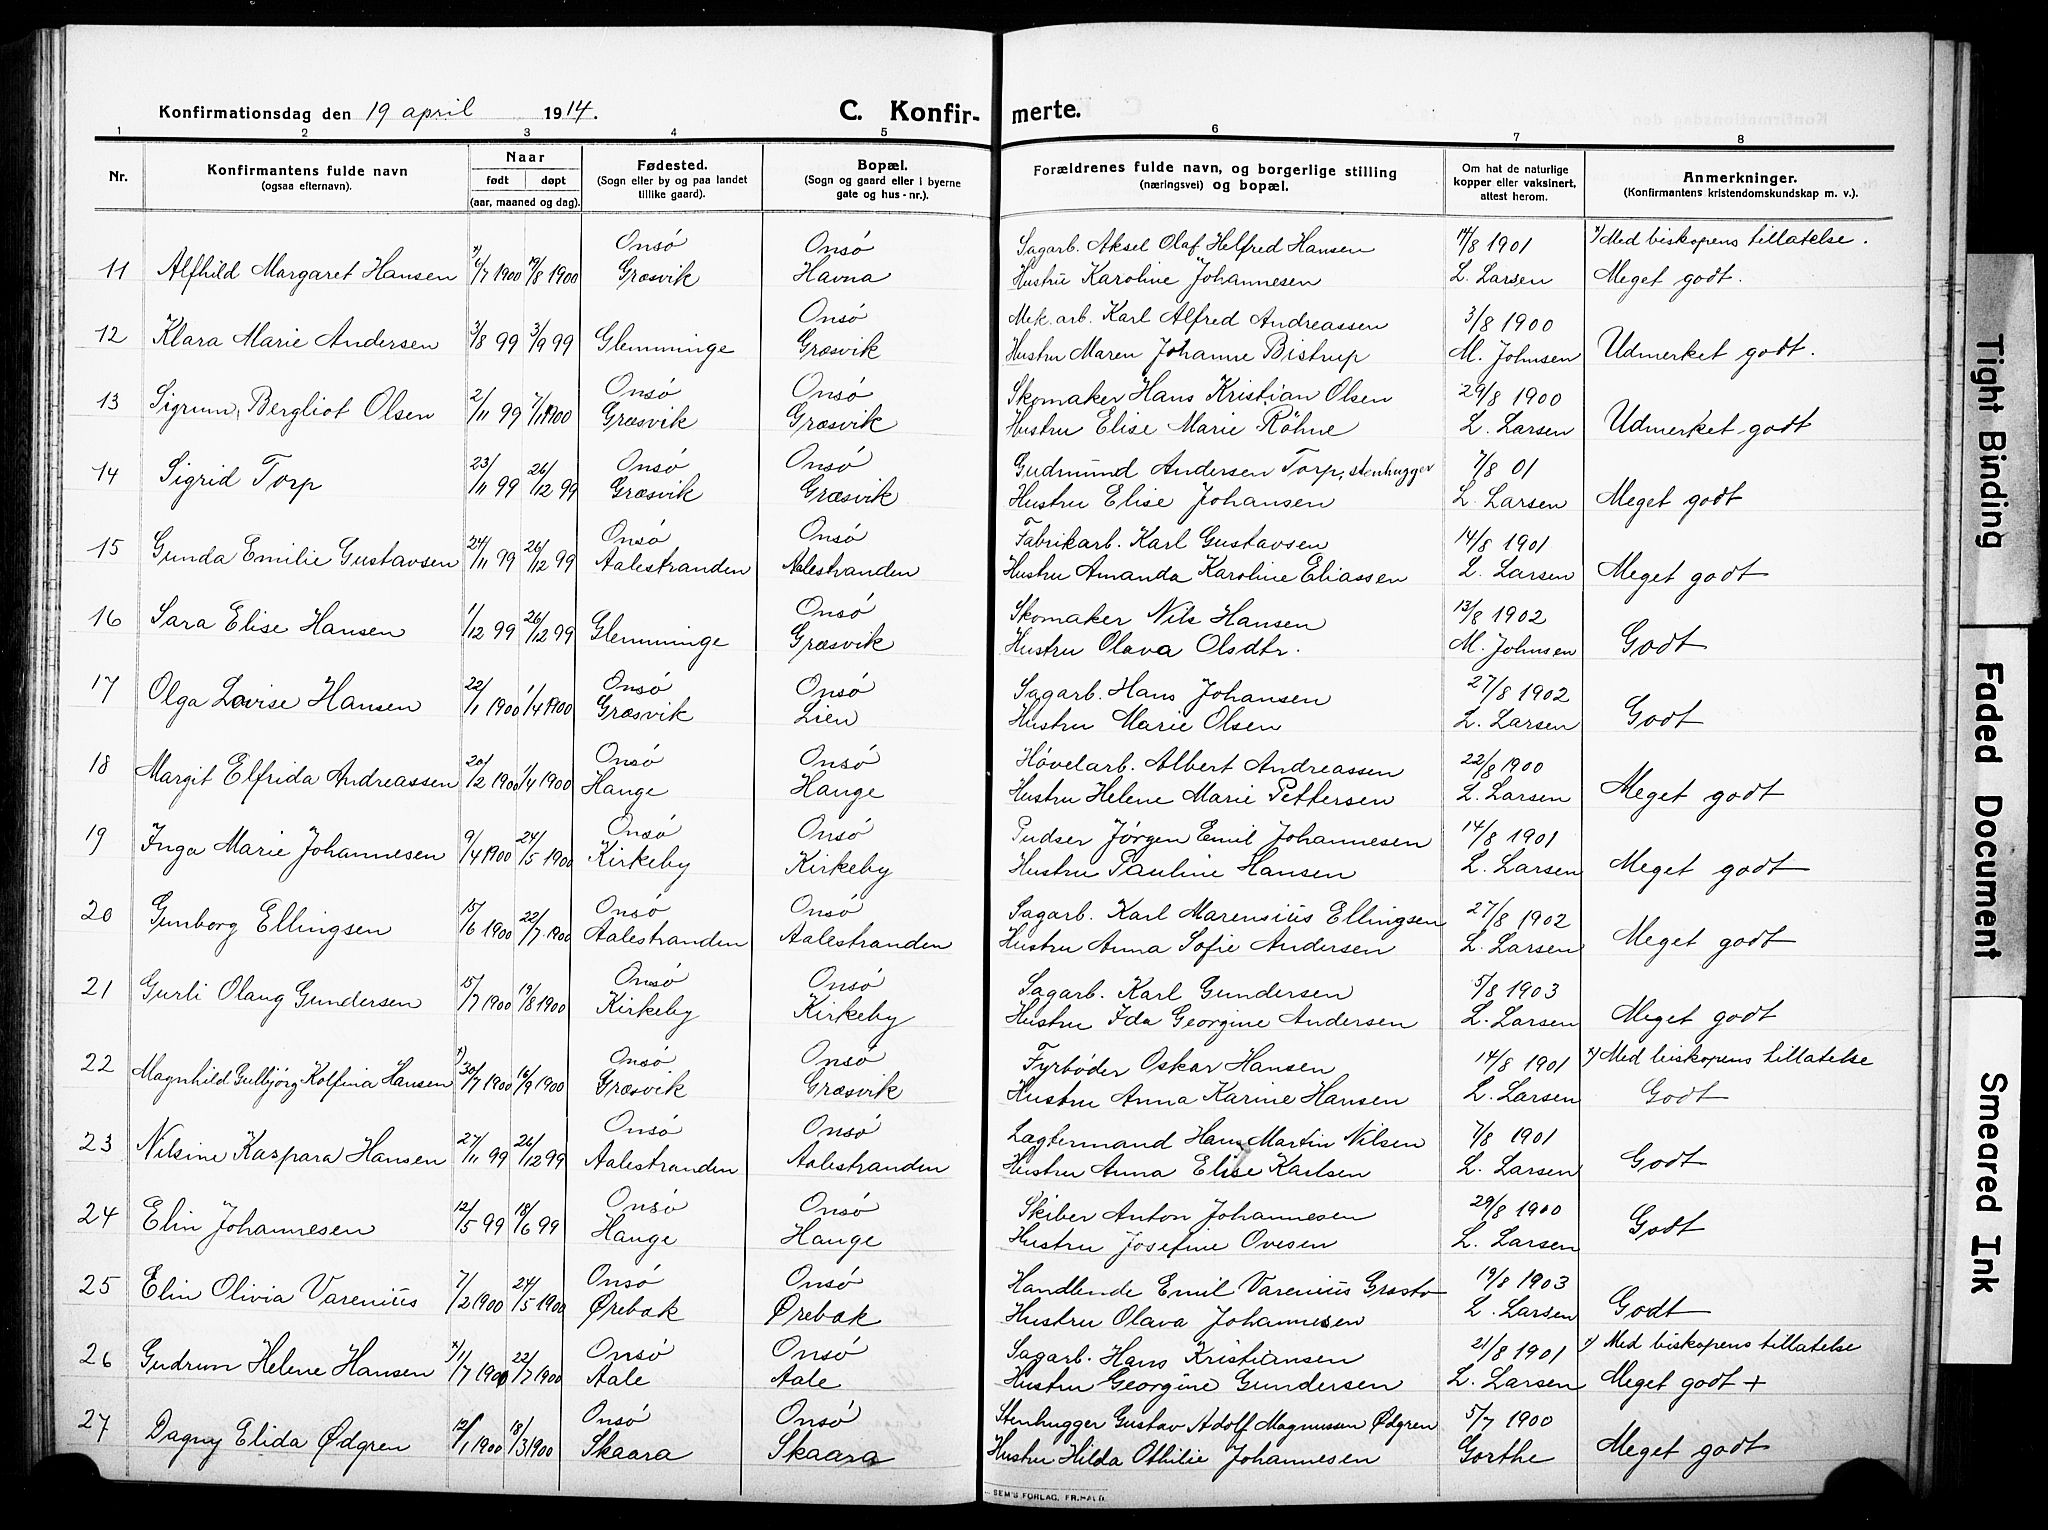 Konfirmationsdag den 19 april 1914. C. Konfir- merte.
1 2 3 4 5 6 7 8
Nr. Konfirmantens fulde navn (ogsaa efternavn). Naar født døpt (aar, maaned og dag). Fødested. (Sogn eller by og paa landet tillike gaard). Bopæl. (Sogn og gaard eller i byerne gate og hus-nr.). Forældrenes fulde navn, og borgerlige stilling (næringsvei) og bopæl. Om hat de naturlige kopper eller vaksinert, attest herom. Anmerkninger. (Konfirmantens kristendomskundskap m. v.).
Onsó Onsó Sagarb. Aksel Olaf Helfred Hansen 14/8 1901 *) Med biskopens tillatelse.
11 Alfhild Margaret Hansen *) 6/7 1900 19/8 1900 Græsvik Havna Hustru Karoline Johannesen L. Larsen Meget godt.
Onsó Mek. arb. Karl Alfred Andreassen 3/8 1900
12 Klara Marie Andersen 3/8 99 3/9 99 Glemminge Græsvik Hustru Maren Johanne Bistrup M. Johnsen Udmerket godt.
Onsó Onsó Skomaker Hans Kristian Olsen 29/8 1900
13 Sigrun Bergliot Olsen 2/11 99 7/1 1900 Græsvik Græsvik Hustru Elise Marie Röhne L. Larsen Udmerket godt
Onsó Onsó Gudmund Andersen Torp, stenhugger 7/8 01
14 Sigrid Torp 23/11 99 26/12 99 Græsvik Græsvik Hustru Elise Johansen L. Larsen Meget godt
Onsó Onsó Fabrikarb. Karl Gustavsen 14/8 1901
15 Gunda Emilie Gustavsen 24/11 99 26/12 99 Aalestranden Aalestranden Hustru Amanda Karoline Eliassen L. Larsen Meget godt
Onsó Skomaker Nils Hansen 13/8 1902
16 Sara Elise Hansen 1/12 99 26/12 99 Glemminge Græsvik Hustru Olava Olsdtr. M. Johnsen Godt
Onsó Onsó Sagarb. Hans Johansen 27/8 1902
17 Olga Lovise Hansen 22/1 1900 1/4 1900 Græsvik Lien Hustru Marie Olsen L. Larsen Godt
Onsó Onsó Hóvelarb. Albert Andreassen 22/8 1900
18 Margit Elfrida Andreassen 20/2 1900 1/4 1900 Hange Hange Hustru Helene Marie Pettersen L. Larsen Meget godt
Onsó Onsó Pudser Jórgen Emil Johannesen 14/8 1901
19 Inga Marie Johannesen 9/4 1900 24/5 1900 Kirkeby Kirkeby Hustru Pauline Hansen L. Larsen Meget godt
Onsó Onsó Sagarb. Karl Marensius Ellingsen 27/8 1902
20 Gunborg Ellingsen 15/6 1900 22/7 1900 Aalestranden Aalestranden Hustru Anna Sofie Andersen L. Larsen Meget godt
Onsó Onsó Sagarb. Karl Gundersen 5/8 1903
21 Gurli Olaug Gundersen 15/7 1900 19/8 1900 Kirkeby Kirkeby Hustru Ida Georgine Andersen L. Larsen Meget godt
Onsó Onsó Fyrbóder Oskar Hansen 14/8 1901 *) Med biskopens tillatelse
22 Magnhild Gulbjórg Kolfina Hansen *) 30/7 1900 16/9 1900 Græsvik Græsvik Hustru Anna Karine Hansen L. Larsen Godt
Onsó Onsó Lægtermand Hans Martin Nilsen 7/8 1901
23 Nilsine Kaspara Hansen 27/11 99 26/12 99 Aalestranden Aalestranden Hustru Anna Elise Karlsen L. Larsen Godt
Onsó Onsó Skiber Anton Johannesen 29/8 1900
24 Elin Johannesen 12/5 99 18/6 99 Hange Hange Hustru Josefine Ovesen L. Larsen Godt
Onsó Onsó Handlende Emil Varenius Grosto 19/8 1903
25 Elin Olivia Varenius 7/2 1900 24/5 1900 Ørebæk Ørebæk Hustru Olava Johannesen L. Larsen Godt
Onsó Onsó Sagarb. Hans Kristiansen 21/8 1901 *) Med biskopens tillatelse
26 Gudrun Helene Hansen *) 1/7 1900 22/7 1900 Aale Aale Hustru Georgine Gundersen L. Larsen Meget godt +
Onsó Onsó Stenhugger Gustav Adolf Magnusson Ødgren 5/7 1900
27 Dagny Elida Ødgren 12/1 1900 18/3 1900 Skaara Skaara Hustru Hilda Othilie Johannesen Gorthe Meget godt
SEM'S FORLAG, FR.HALD.
Tight Binding
Faded Document
Smeared Ink